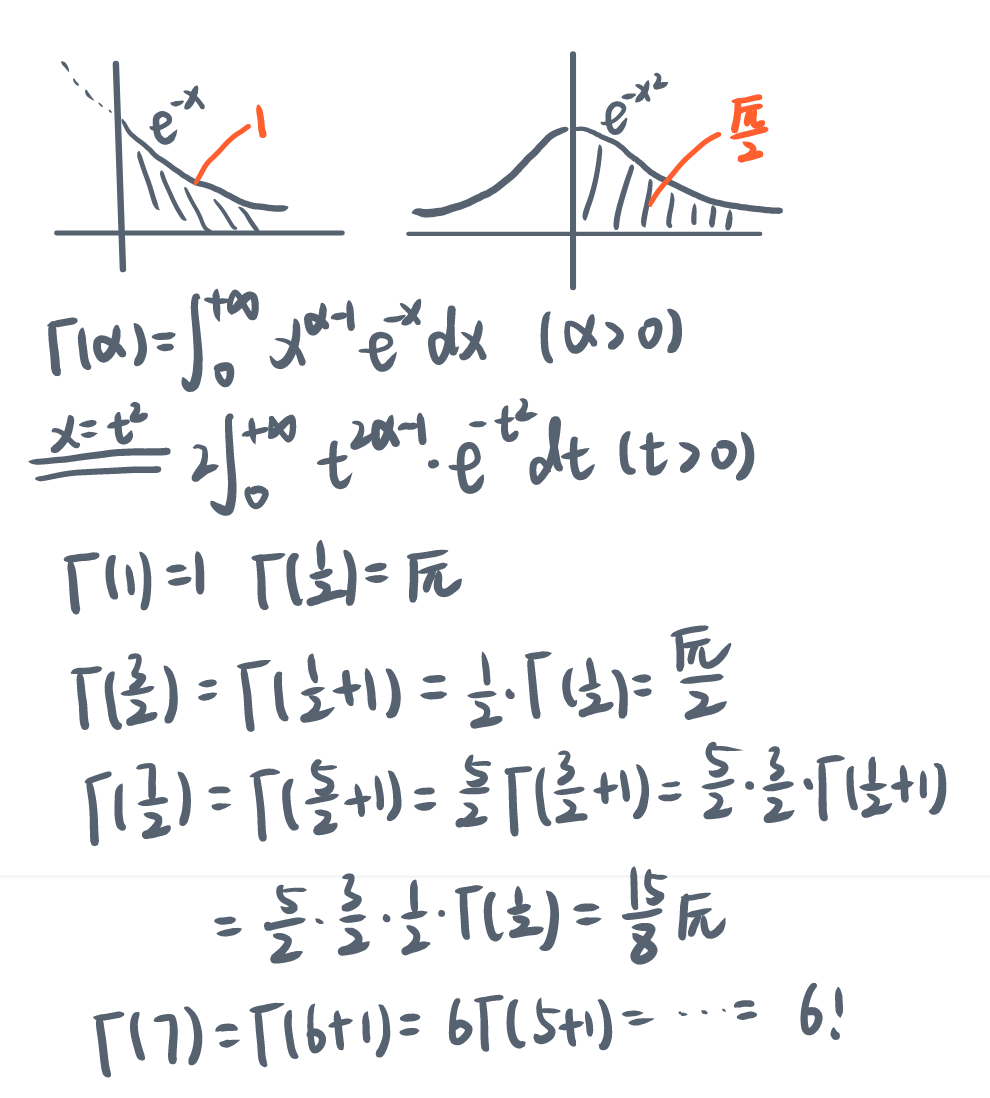 e^{-x} 1
e^{-x^2} \frac{\sqrt{\pi}}{2}
Γ(α)=∫_0^{+∞} x^{α-1} e^{-x} dx (α>0)
x=t^2 2∫_0^{+∞} t^{2α-1}·e^{-t^2} dt (t>0)
Γ(1)=1 Γ(\frac{1}{2})=\sqrt{\pi}
Γ(\frac{3}{2})=Γ(\frac{1}{2}+1)=\frac{1}{2}·Γ(\frac{1}{2})=\frac{\sqrt{\pi}}{2}
Γ(\frac{7}{2})=Γ(\frac{5}{2}+1)=\frac{5}{2}Γ(\frac{3}{2}+1)=\frac{5}{2}·\frac{3}{2}·Γ(\frac{1}{2}+1)
=\frac{5}{2}·\frac{3}{2}·\frac{1}{2}·Γ(\frac{1}{2})=\frac{15}{8}\sqrt{\pi}
Γ(7)=Γ(6+1)=6Γ(5+1)=⋯=6!